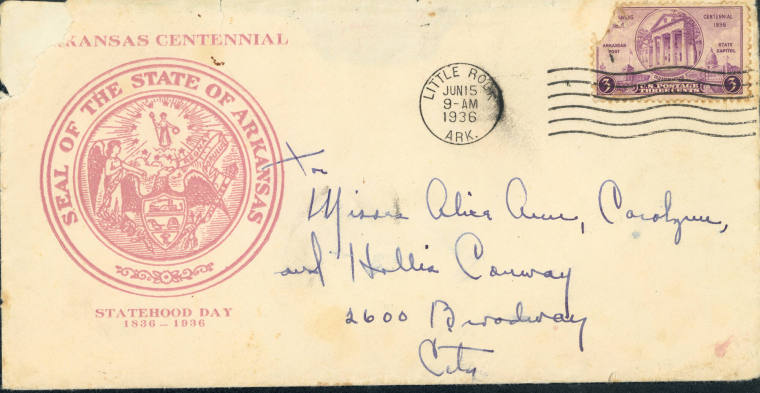 KANSAS CENTENNIAL
SEAL OF THE STATE OF ARKANSAS
STATEHOOD DAY
1836 – 1936
LITTLE ROCK
JUN 15
9-AM
1936
ARK.
CENTENNIAL
1936
ARKANSAS
POST
STATE
CAPITOL
3
U.S. POSTAGE
THREE CENTS
3
To
Misses Alice Ann, Carolynn,
and Hollis Conway
2600 Broadway
City